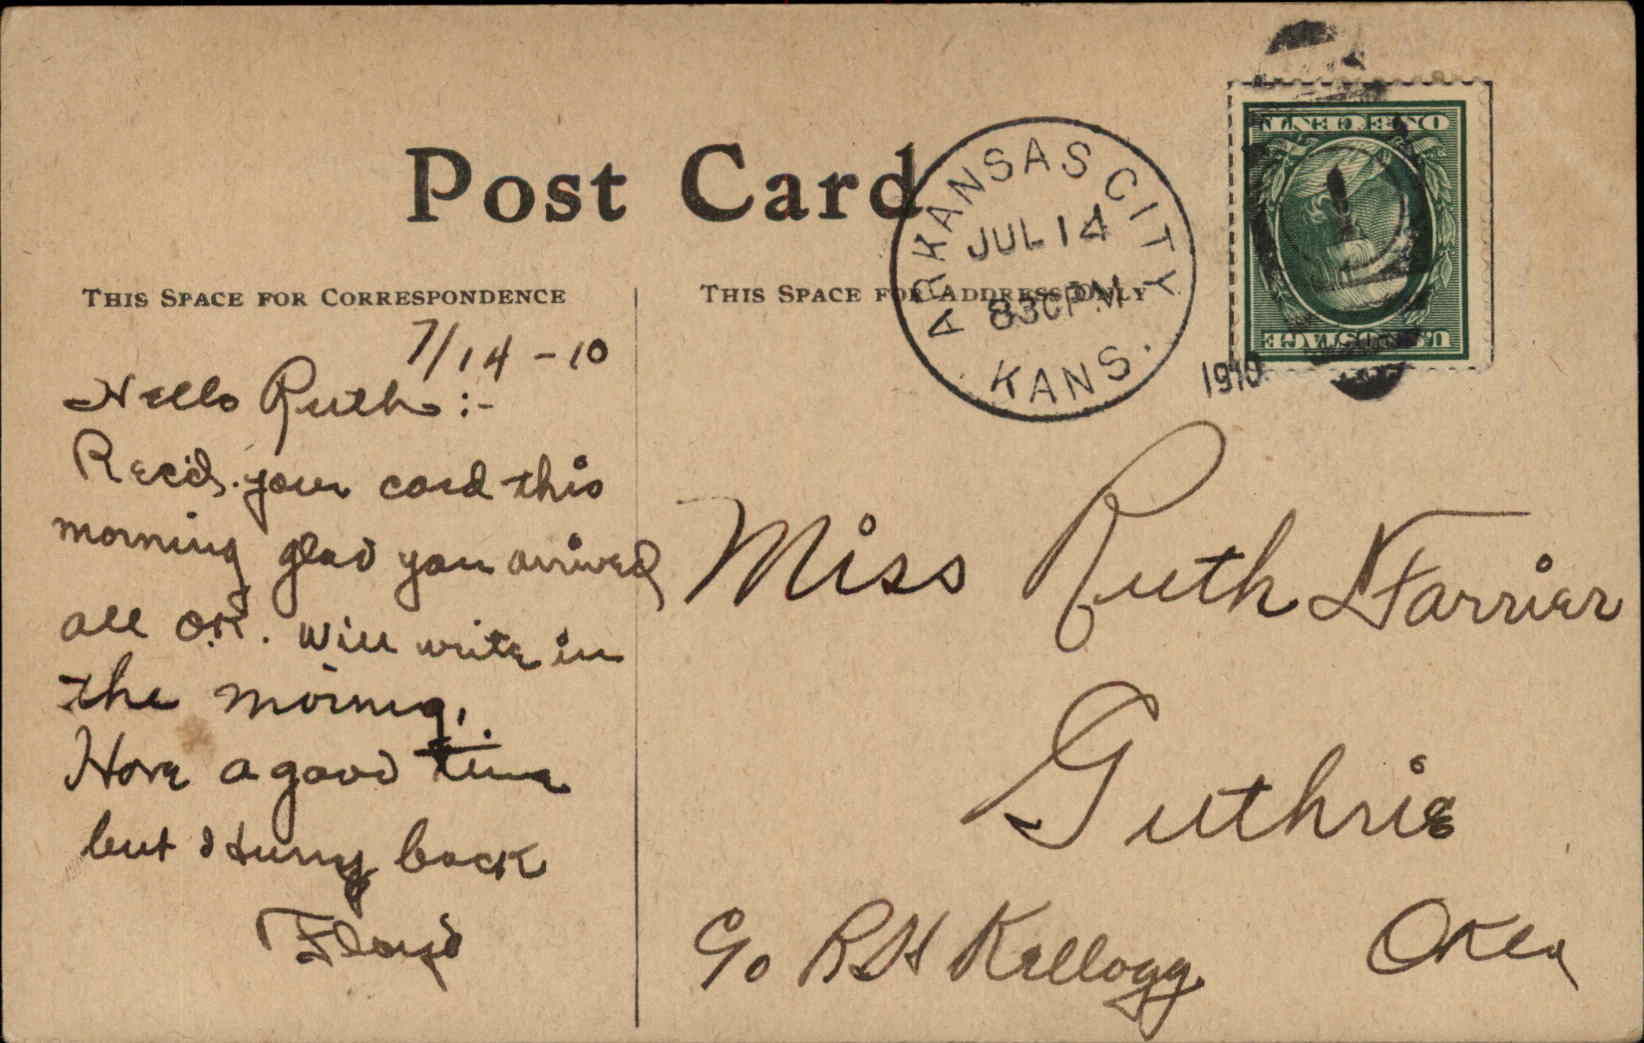 Post Card
THIS SPACE FOR CORRESPONDENCE
THIS SPACE FOR ADDRESS ONLY
ARKANSAS CITY
JUL 14
830 PM
KANS.
1910
ONE CENT
U.S. POSTAGE
1
7/14-10
Hello Ruth:-
Rec'd. your card this
morning glad you arrived
all O.K. Will write in
the morning.
Have a good time
but hurry back
Floyd
Miss Ruth Farrier
Guthrie
Okla
c/o R H Kellogg